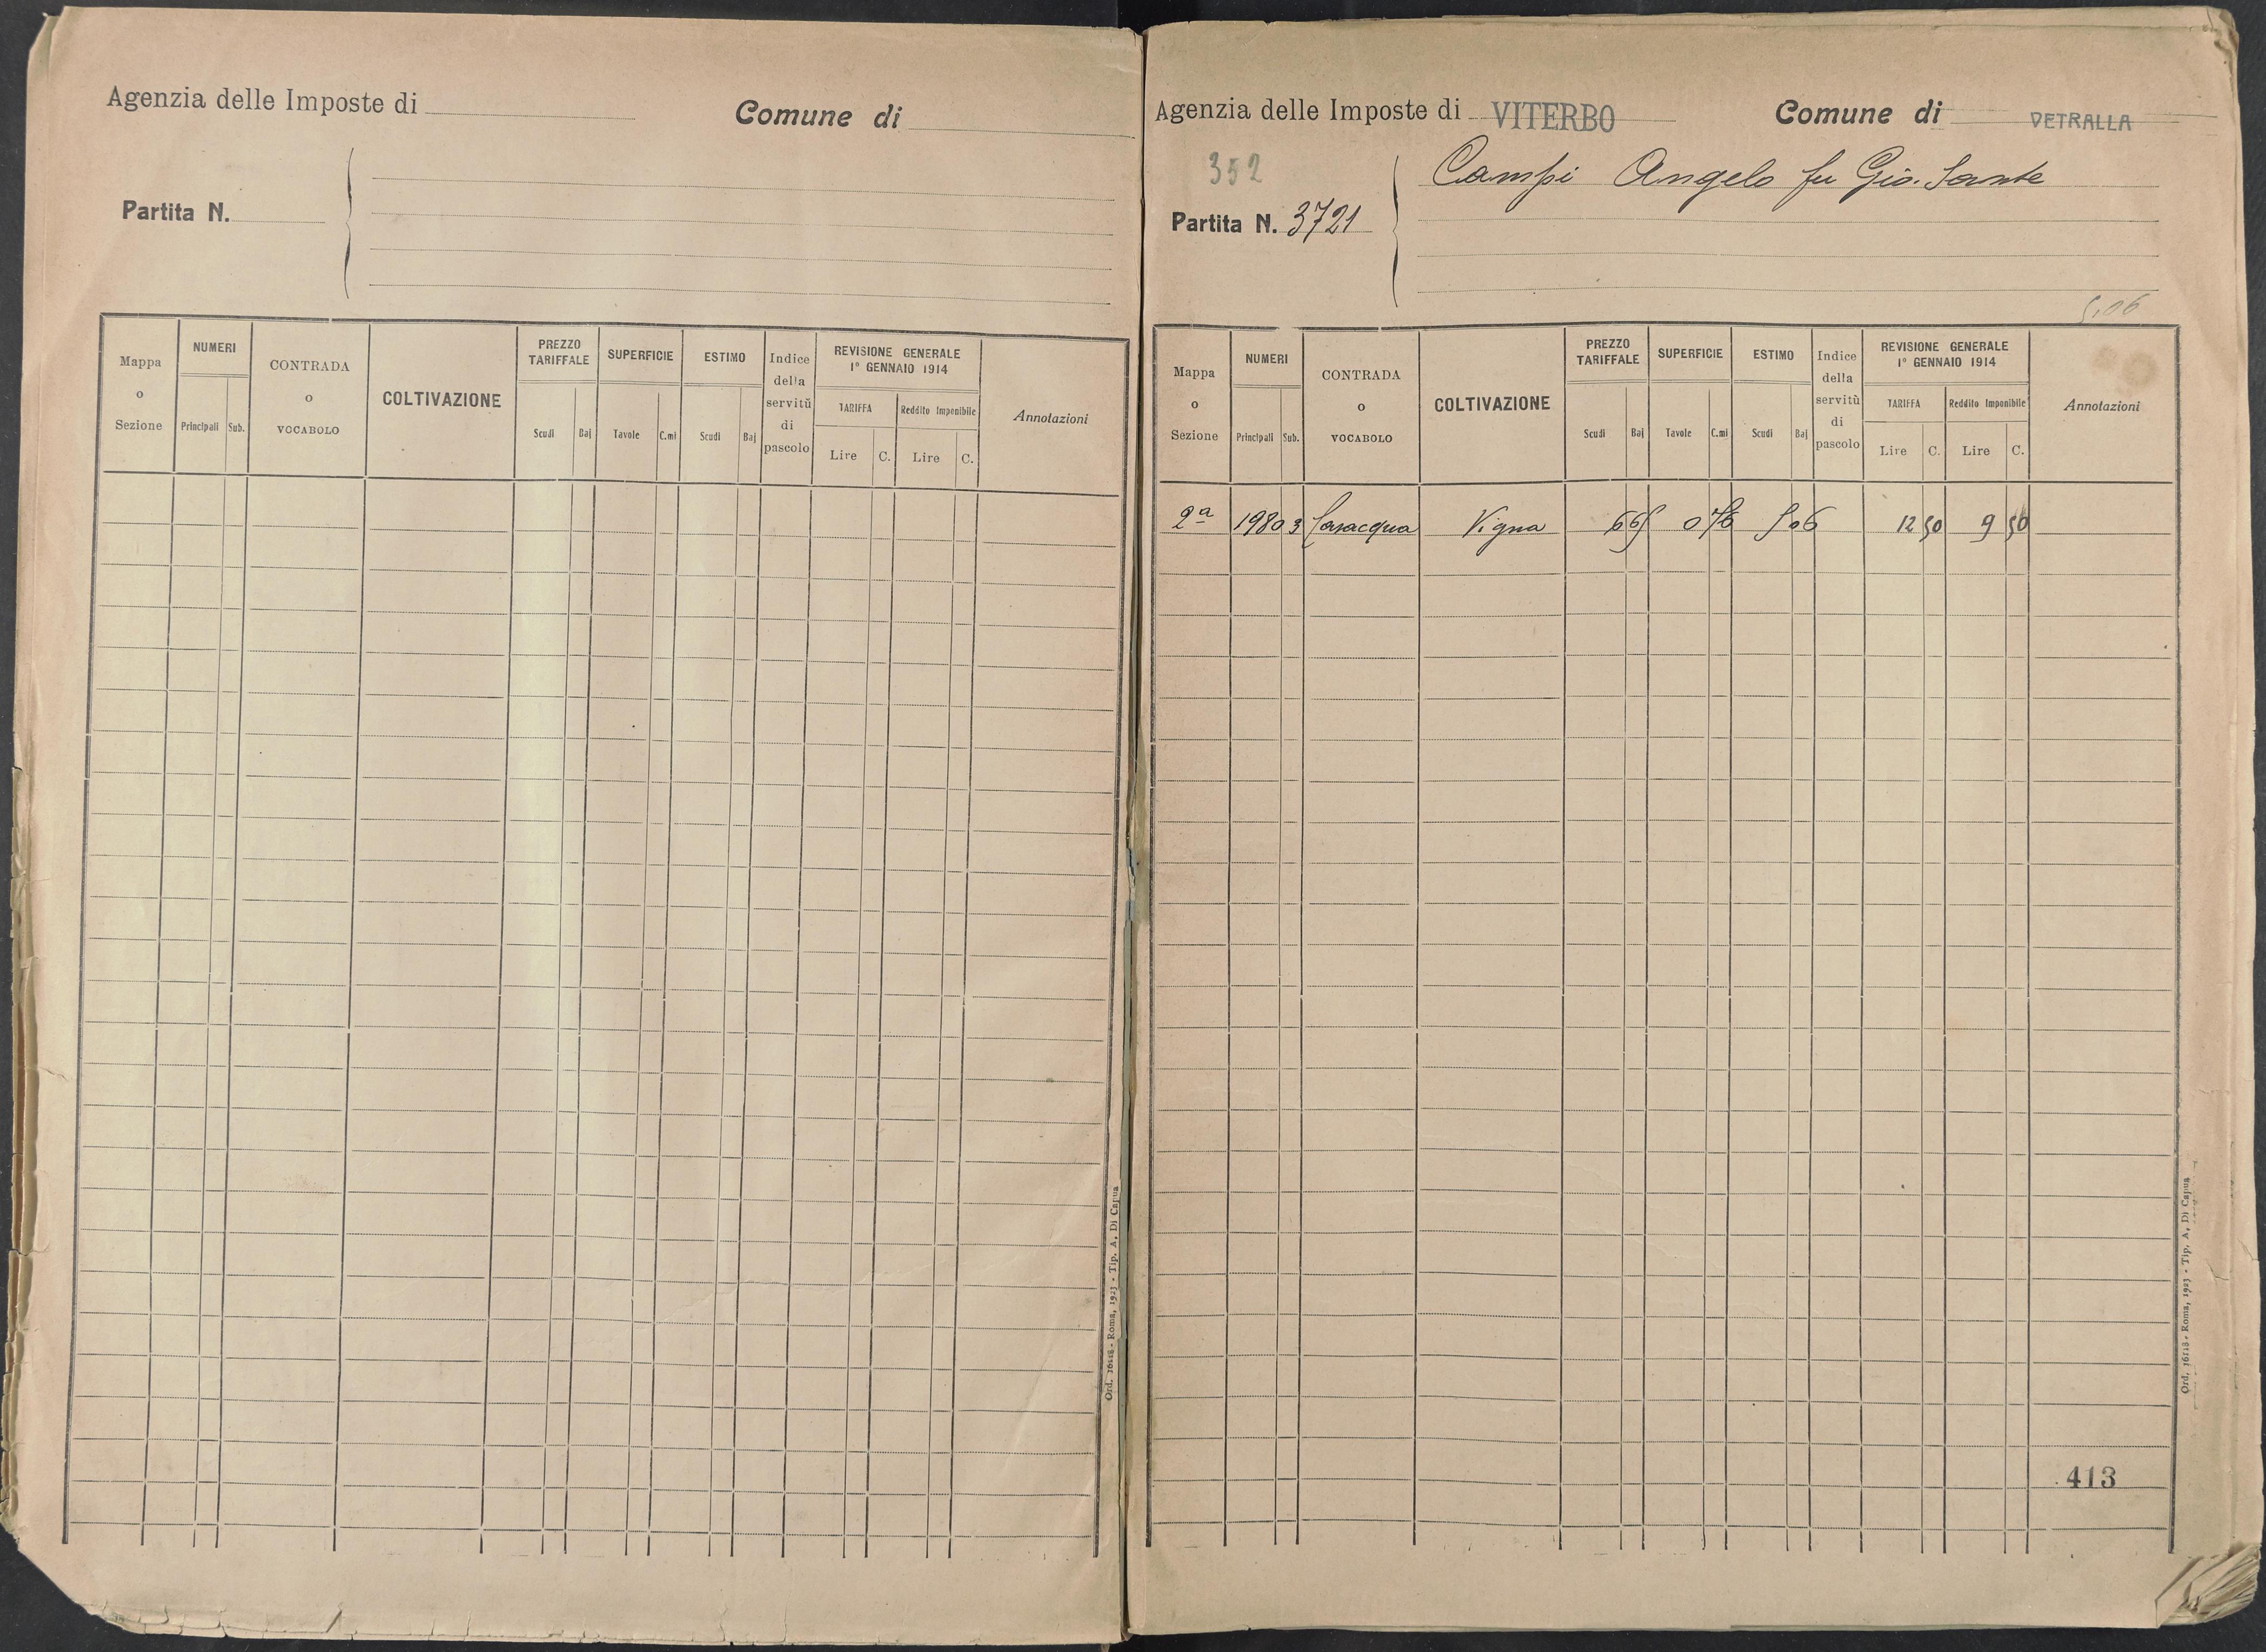 Agenzia delle Imposte di
Comune di
Partita N.
Mappa o Sezione
NUMERI
Principali Sub.
CONTRADA o VOCABOLO
COLTIVAZIONE
PREZZO TARIFFALE
Scudi Baj
SUPERFICIE
Tavole C.mi
ESTIMO
Scudi Baj
Indice della servitù di pascolo
REVISIONE GENERALE
1° GENNAIO 1914
TARIFFA
Lire C.
Reddito Imponibile
Lire C.
Annotazioni
Ord. 16118 - Roma, 1923 - Tip. A. Di Capua
Agenzia delle Imposte di VITERBO
Comune di VETRALLA
352
Campi Angelo fu Gio. Sante
Partita N. 3721
5,06
Mappa o Sezione
NUMERI
Principali Sub.
CONTRADA o VOCABOLO
COLTIVAZIONE
PREZZO TARIFFALE
Scudi Baj
SUPERFICIE
Tavole C.mi
ESTIMO
Scudi Baj
Indice della servitù di pascolo
REVISIONE GENERALE
1° GENNAIO 1914
TARIFFA
Lire C.
Reddito Imponibile
Lire C.
Annotazioni
2ª 1980 3 Vigna 6 65 0 76 5 06 12 50 9 50
413
Ord. 16118 - Roma, 1923 - Tip. A. Di Capua